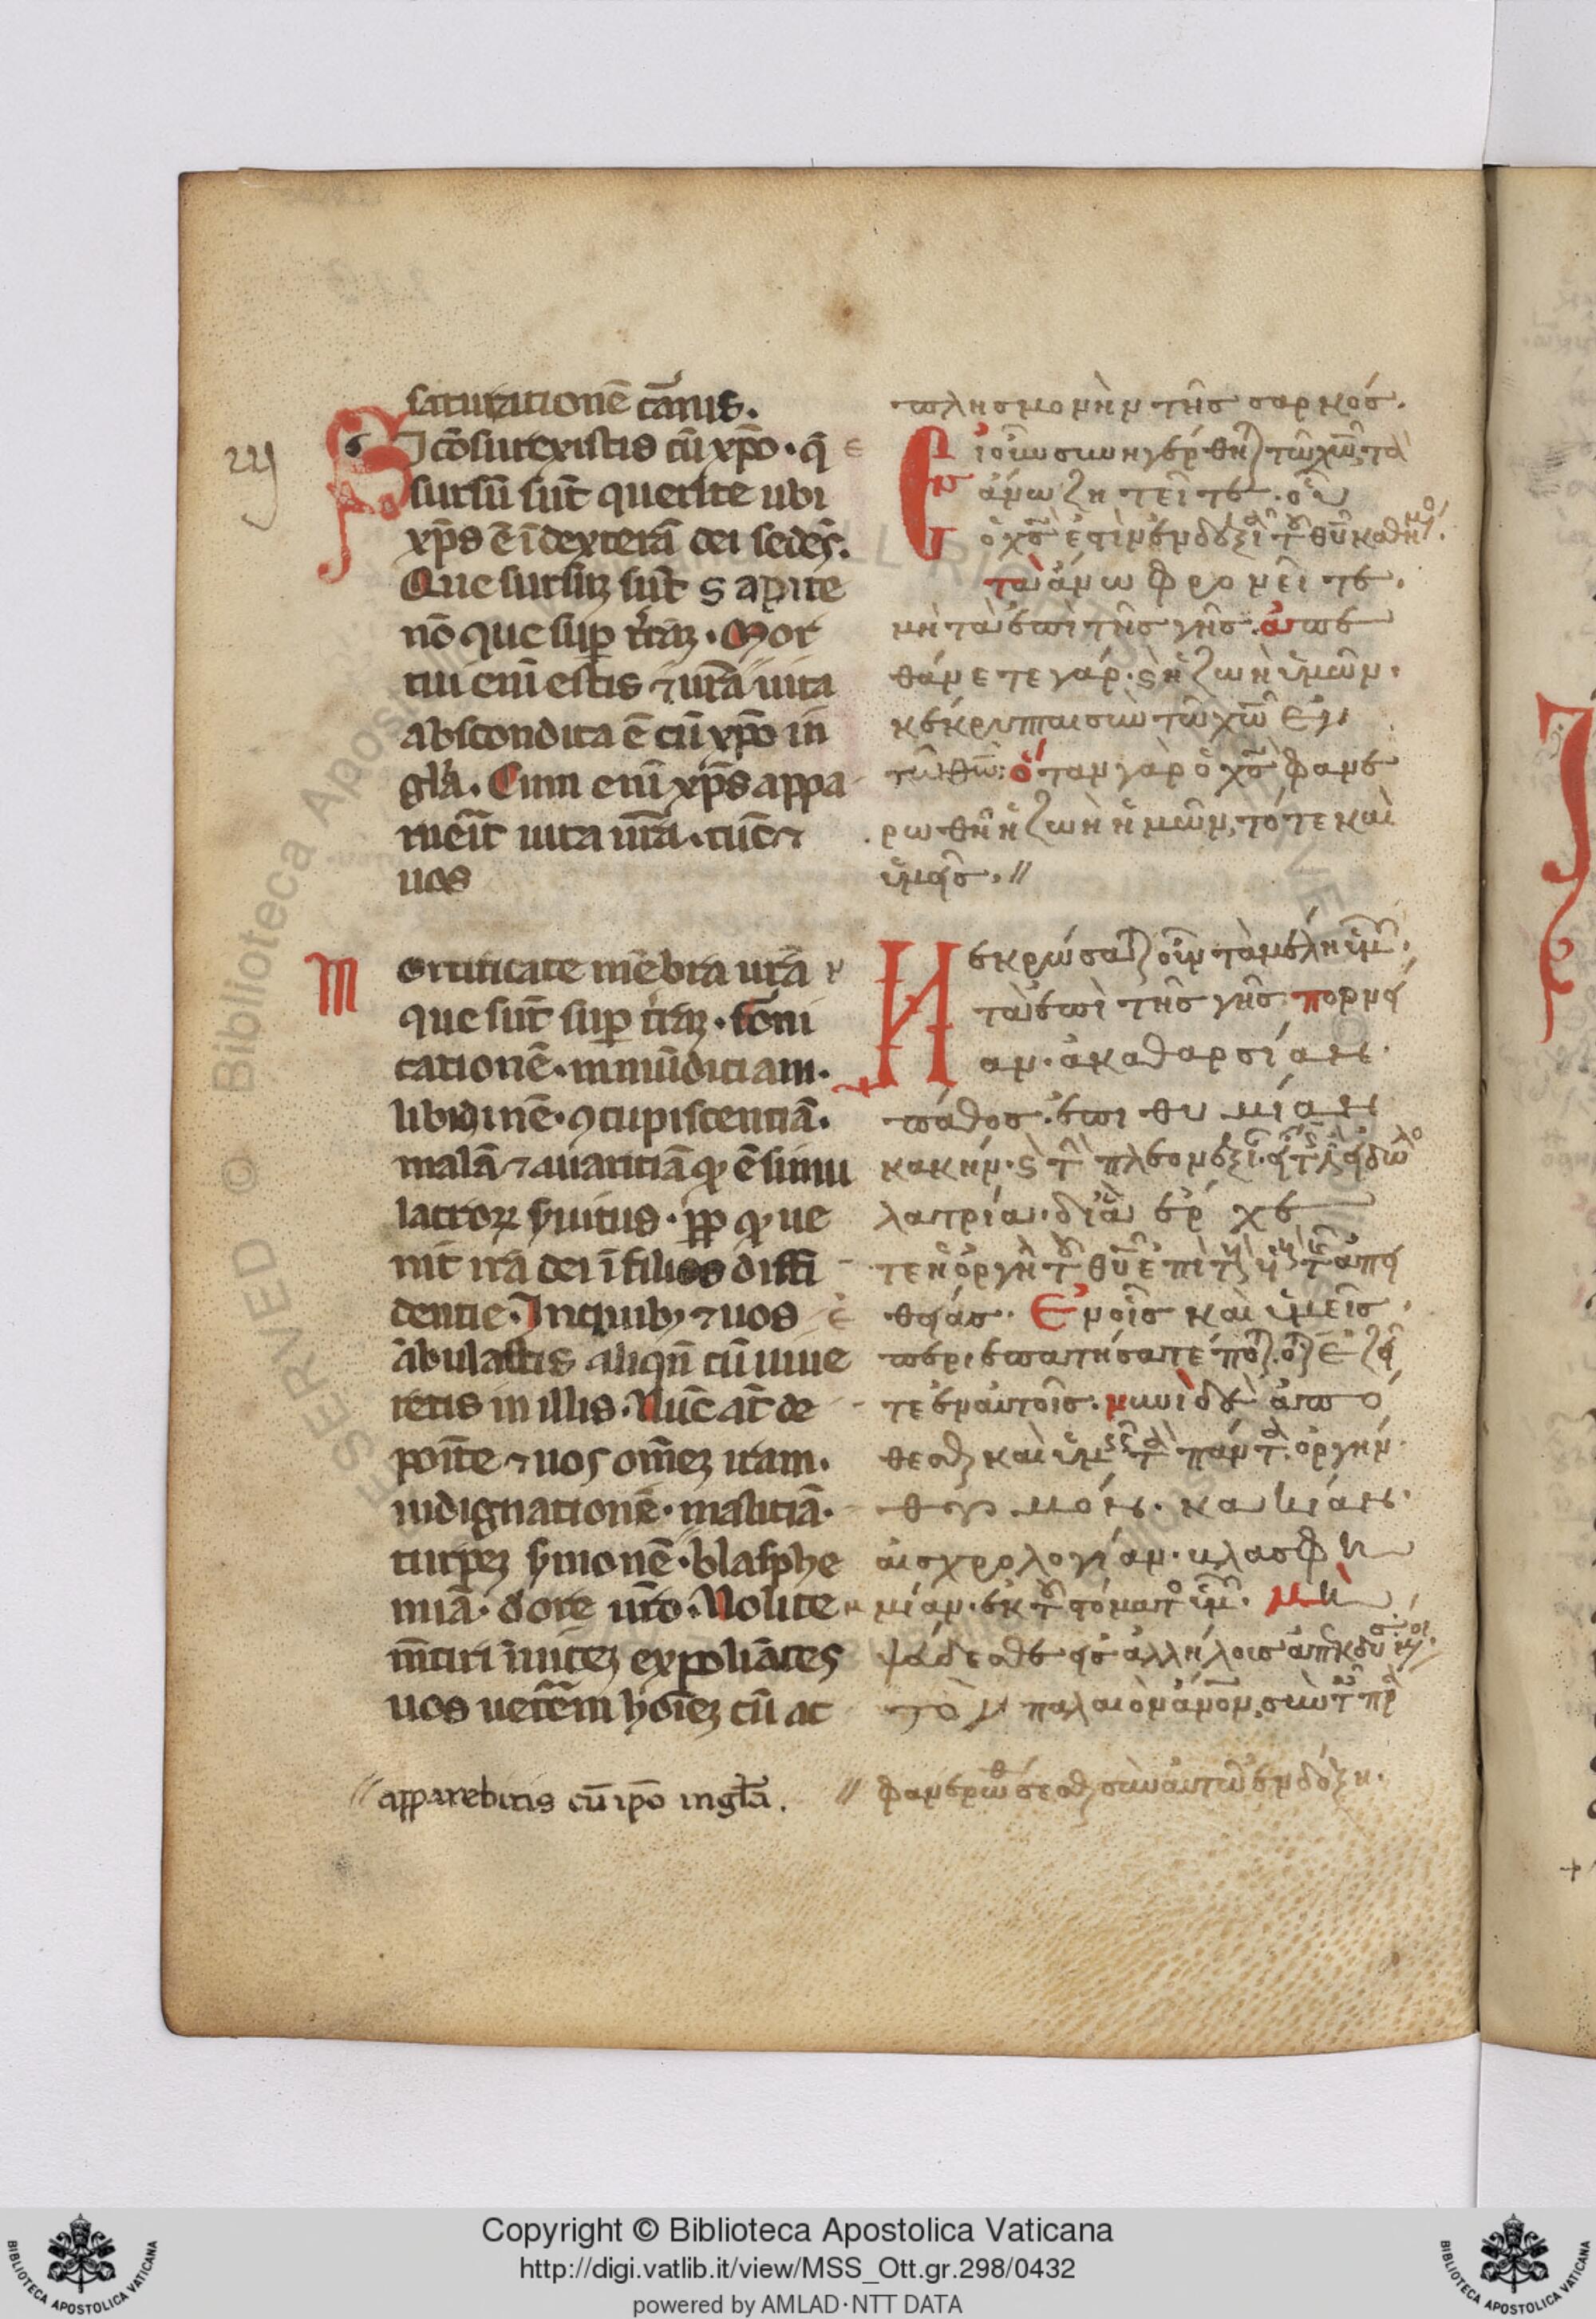 saturationē carnis.
iij
Si cōsurexistis cū xp̄o. q̄
sursū sūt querite ubi
xp̄s ē ī dexterā dei sedēs.
Que sursuꝫ sūt sapite
nō que suꝑ terrāꝫ. Mor
tui eni estis ⁊ ur̄a uita
abscondita ē cū xp̄o in
gl̄ia. Cum eni xp̄s appa
ruerit uita ur̄a. tūc ⁊
uos
Mortificate mēbra ur̄a
que sūt suꝑ terrāꝫ. forni
cationē. inmūditiam.
libidinē. ꝯcupiscentiā.
malā ⁊ auaritiā qͥ ē simu
lacroꝝ seruitus. ꝓꝑ qͥ ue
nit ira dei ī filios diffi
dentie. In quibꝫ ⁊ uos
ābulastis aliqn̄ cū uiue
retis in illis. Nūc āt de
ponite ⁊ uos om̄eꝫ iram.
indignationē. malitiā.
turpeꝫ sermonē. blasphe
miā. d ore ur̄o. Nolite
mētiri inuiceꝫ expoliātes
uos ueterem hoīeꝫ cū ac
// apparebitis cū ip̄o in gl̄ia.
πλησμονὴν τῆς σαρκός.
Εἰ οὖν συνηγέρθητε τῶ χω̄, τὰ
ἄνω ζητεῖτε. οὗ
ὁ χσ̄ ἐστὶν ἐν δεξιᾶ τοῦ θῡ καθήμενος.
τὰ ἄνω φρονεῖτε.
μὴ τὰ ἐπὶ τῆς γῆς. ἀπε
θάνετε γάρ. ϗ ἡ ζωὴ ὑμῶν.
κέκρυπται σὺν τῶ χω̄ ἐν
τῶ θω̄. ὅταν γὰρ ὁ χσ̄ φανε
ρωθῆ ἡ ζωὴ ἡμῶν, τότε καὶ
ὑμεῖς. //
Νεκρώσατε οὖν τὰ μέλη ὑμῶν.
τὰ ἐπὶ τῆς γῆς. πορνεί
αν. ἀκαθαρσίαν.
πάθος. ἐπιθυμίαν
κακήν. ϗ τὴν πλεονεξίαν. ἥτις ἐστὶν εἰδωλο
λατρία. δι' ἃ ἔρχε
τε ἡ ὀργὴ τοῦ θῡ ἐπὶ τοὺς υἱοὺς τῆς ἀπει
θείας. Ἐν οἷς καὶ ὑμεῖς
περιεπατήσατέ ποτε. ὅτε ἐζῆ
τε ἐν αὐτοῖς. νυνὶ δὲ ἀπό
θεσθε καὶ ὑμεῖς τὰ πάντα. ὀργήν.
θυμόν. κακίαν.
αἰσχρολογίαν. βλασφη
μίαν. ἐκ τοῦ στόματος ὑμῶν. μὴ
ψεύδεσθε εἰς ἀλλήλους ἀπεκδυσάμενοι
τὸν παλαιὸν ἄνον̄. σὺν ταῖς πρά
// φανερωθήσεσθε σὺν αὐτῶ ἐν δόξη.
Copyright © Biblioteca Apostolica Vaticana
http://digi.vatlib.it/view/MSS_Ott.gr.298/0432
powered by AMLAD·NTT DATA